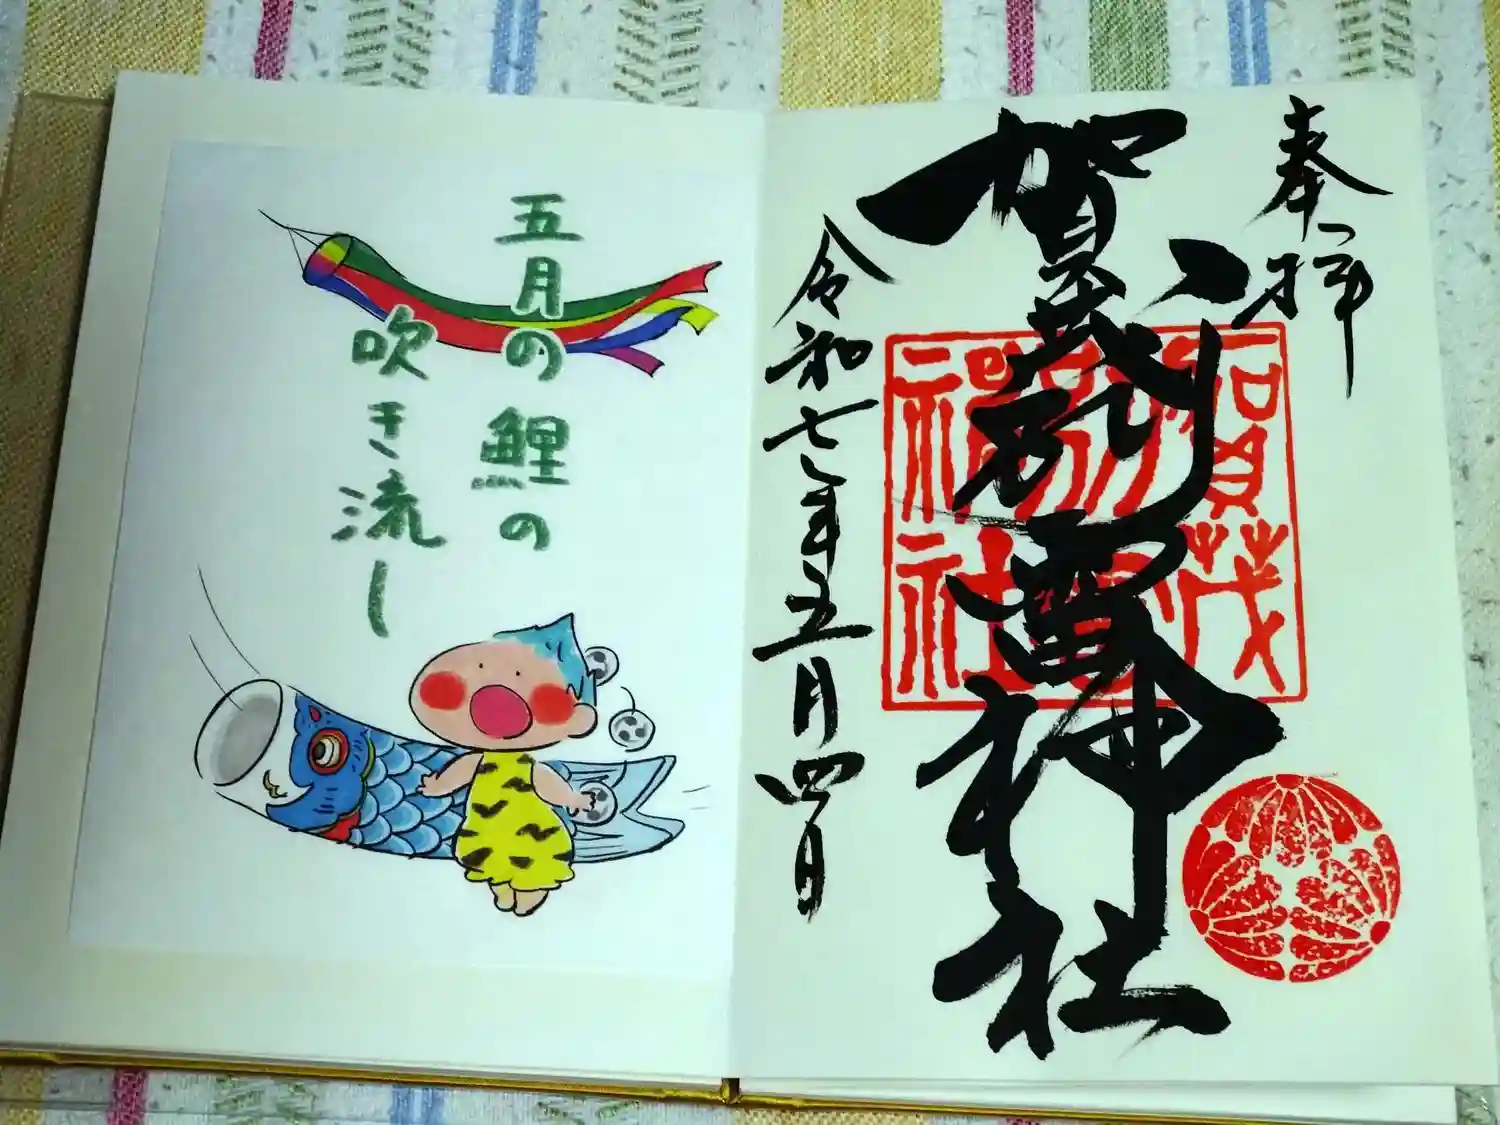 五月の鯉の
吹き流し
奉拝
賀茂別雷神社
賀茂
別雷
神社
令和七年五月四日